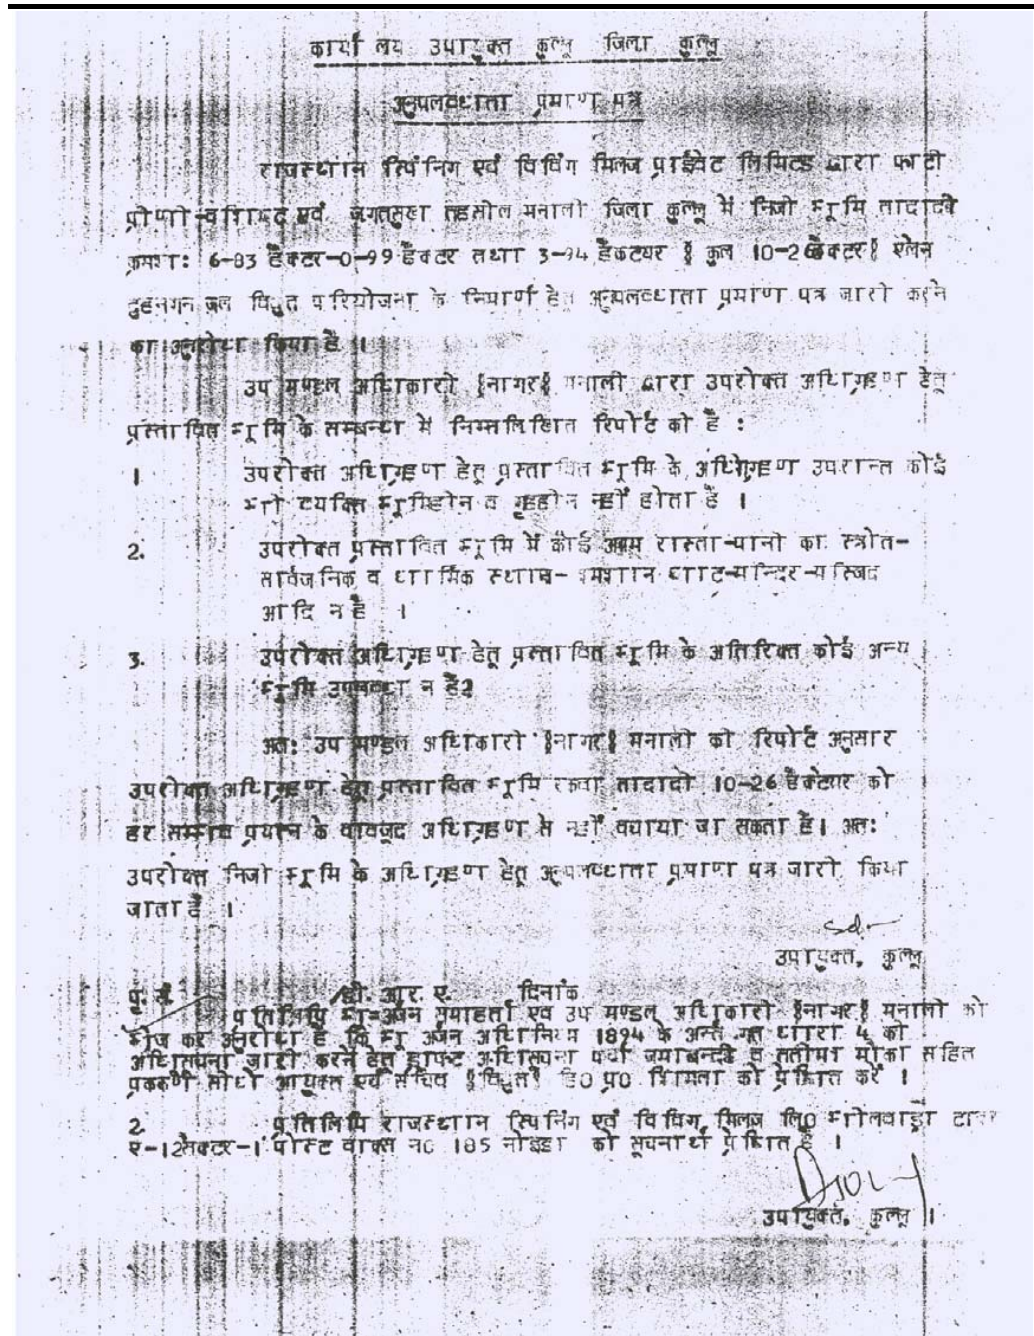 कार्यालय उपायुक्त कुल्लू जिला कुल्लू
अनुपलब्धता प्रमाण पत्र
राजस्थान स्पिनिंग एवं विविंग मिल्ज प्राईवेट लिमिटड द्वारा फाटी
प्रीणी-वशिष्ट एवं जगतसुख तहसील मनाली जिला कुल्लू में निजी भूमि तादादी
क्रमश: 6-83 हैक्टर-0-99 हैक्टर तथा 3-94 हैक्टयर § कुल 10-26 हैक्टर§ एलेन
दुहनगन जल विधुत परियोजना के निमार्ण हेतु अनुपलब्धता प्रमाण पत्र जारी करने
का अनुरोध किया है ।
उप मण्डल अधिकारी §नागर§ मनाली द्वारा उपरोक्त अधिग्रहण हेतू
प्रस्तावित भूमि के सम्बन्ध में निम्नलिखित रिपोर्ट की है :
1 उपरोक्त अधिग्रहण हेतू प्रस्तावित भूमि के अधिग्रहण उपरान्त कोई
भी व्यक्ति भूमिहीन व गृहहीन नहीं होता है ।
2. उपरोक्त प्रस्तावित भूमि में कोई आम रास्ता-पानी का स्त्रोत-
सार्वजनिक व धार्मिक स्थान- शमशान घाट-मन्दिर-मस्जिद
आदि न है ।
3. उपरोक्त अधिग्रहण हेतू प्रस्तावित भूमि के अतिरिक्त कोई अन्य
भूमि उपलब्ध न है2
अत: उप मण्डल अधिकारी §नागर§ मनाली की रिपोर्ट अनुसार
उपरोक्त अधिग्रहण हेतू प्रस्तावित भूमि रकवा तादादी 10-26 हैक्टेयर को
हर सम्भव प्रयत्न के वावजूद अधिग्रहण से नहीं वचाया जा सकता है। अत:
उपरोक्त निजी भूमि के अधिग्रहण हेतू अनुपलब्धता प्रमाण पत्र जारी किया
जाता है ।
Sd/-
उपायुक्त, कुल्लू
पृ. सं. /डी. आर. ए. दिनांक
प्रतिलिपि भू-अर्जन समाहर्ता एवं उप मण्डल अधिकारी §नागर§ मनाली को
भेज कर अनुरोध है कि भू अर्जन अधिनियम 1894 के अन्तर्गत धारा 4 की
अधिसूचना जारी करने हेतु ड्राफ्ट अधिसूचना पर्चा जमाबन्दी व ततीमा मौका सहित
प्रकरण सीधे आयुक्त एवं सचिव §विधुत§ हि0 प्र0 शिमला को प्रेषित करें ।
2. प्रतिलिपि राजस्थान स्पिनिंग एवं विविंग मिलज लि0 भीलवाड़ा टावर
ए-12सैक्टर-1 पोस्ट वाक्स न0 185 नोइडा को सूचनार्थ प्रेषित है ।
उपायुक्त, कुल्लू ।